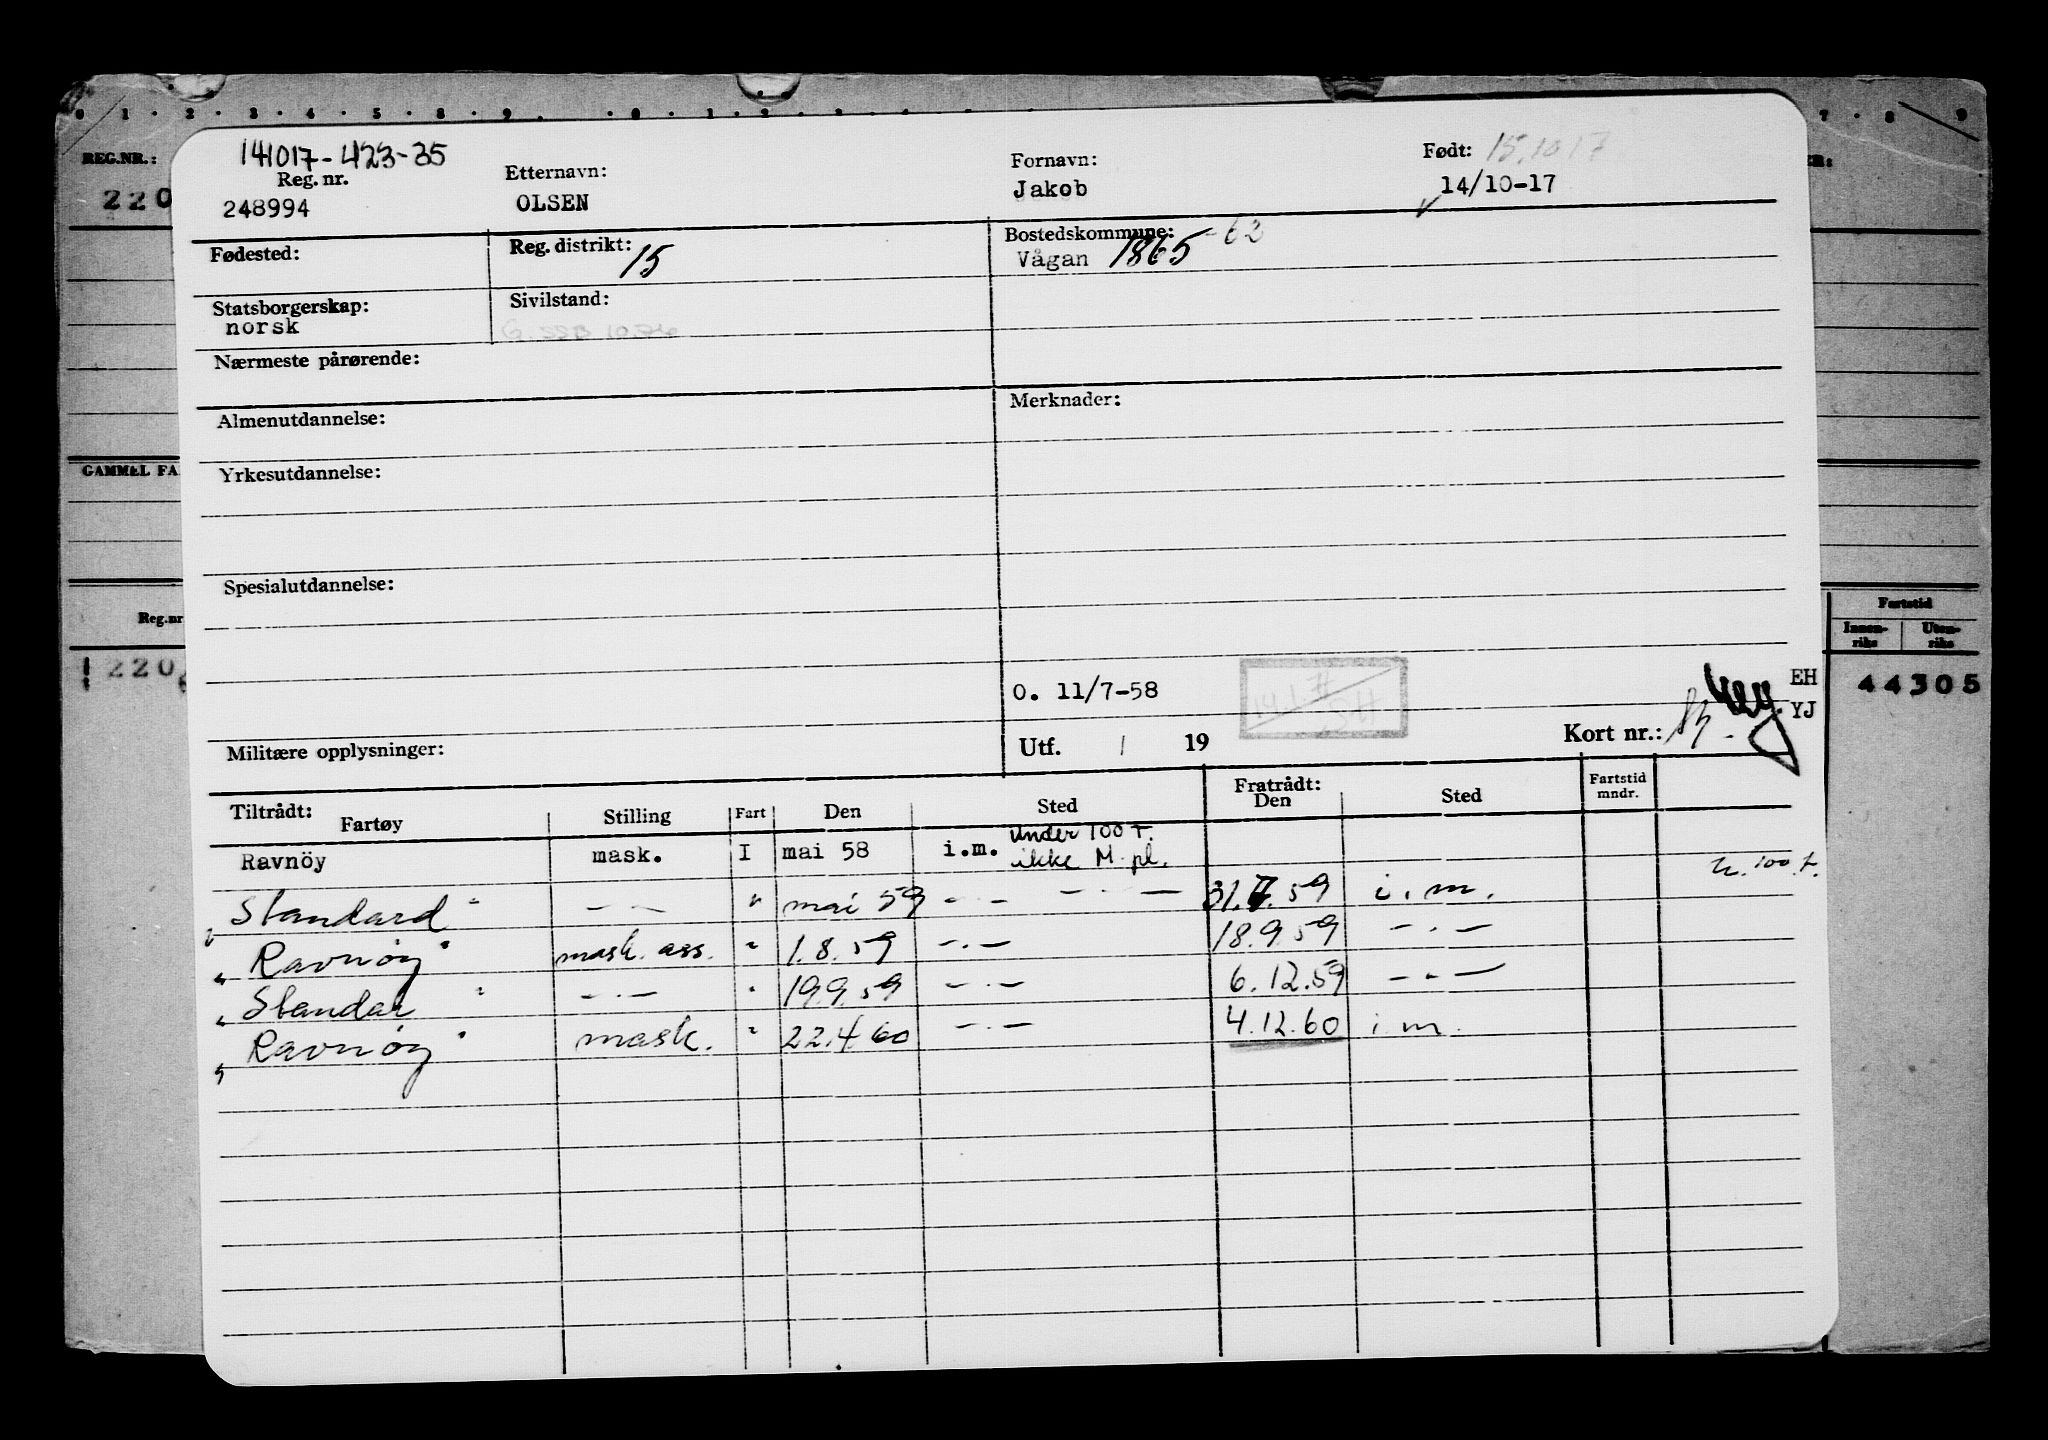 0 . 1 . 2 . 3 . 4 . 5 . 8 . 9 . 0 . 1 . 2 7 . 8 . 9
REG.NR.:
220
141017-423-35
Reg. nr.
248994
Etternavn:
OLSEN
Fornavn:
Jakob
Født: 15.10 17
14/10-17
Fødested:
Reg. distrikt: 15
Bostedskommune: -62
Vågan 1865
Statsborgerskap:
norsk
Sivilstand:
Nærmeste pårørende:
Almenutdannelse:
Merknader:
GAMMEL FA
Yrkesutdannelse:
Spesialutdannelse:
Reg.nr
220
Fartstid
Innen-riks Uten-riks
44305
O. 11/7-58
EH
YJ
Militære opplysninger:
Utf. / 19
Kort nr.:
Tiltrådt:
Fartøy Stilling Fart Den Sted Fratrådt: Den Sted Fartstid mndr.
Ravnöy mask. I mai 58 i.m. under 100 T. ikke M.pl.
" Standard " -"- " mai 59 -"- -"- 31.7.59 i.m. u. 100 t.
" Ravnøy " mask. ass. " 1.8.59 -.- 18.9.59 -.-
" Standar " -.- " 19.9.59 -.- 6.12.59 -.-
" Ravnøy " mask. " 22.4.60 -.- 4.12.60 i.m.